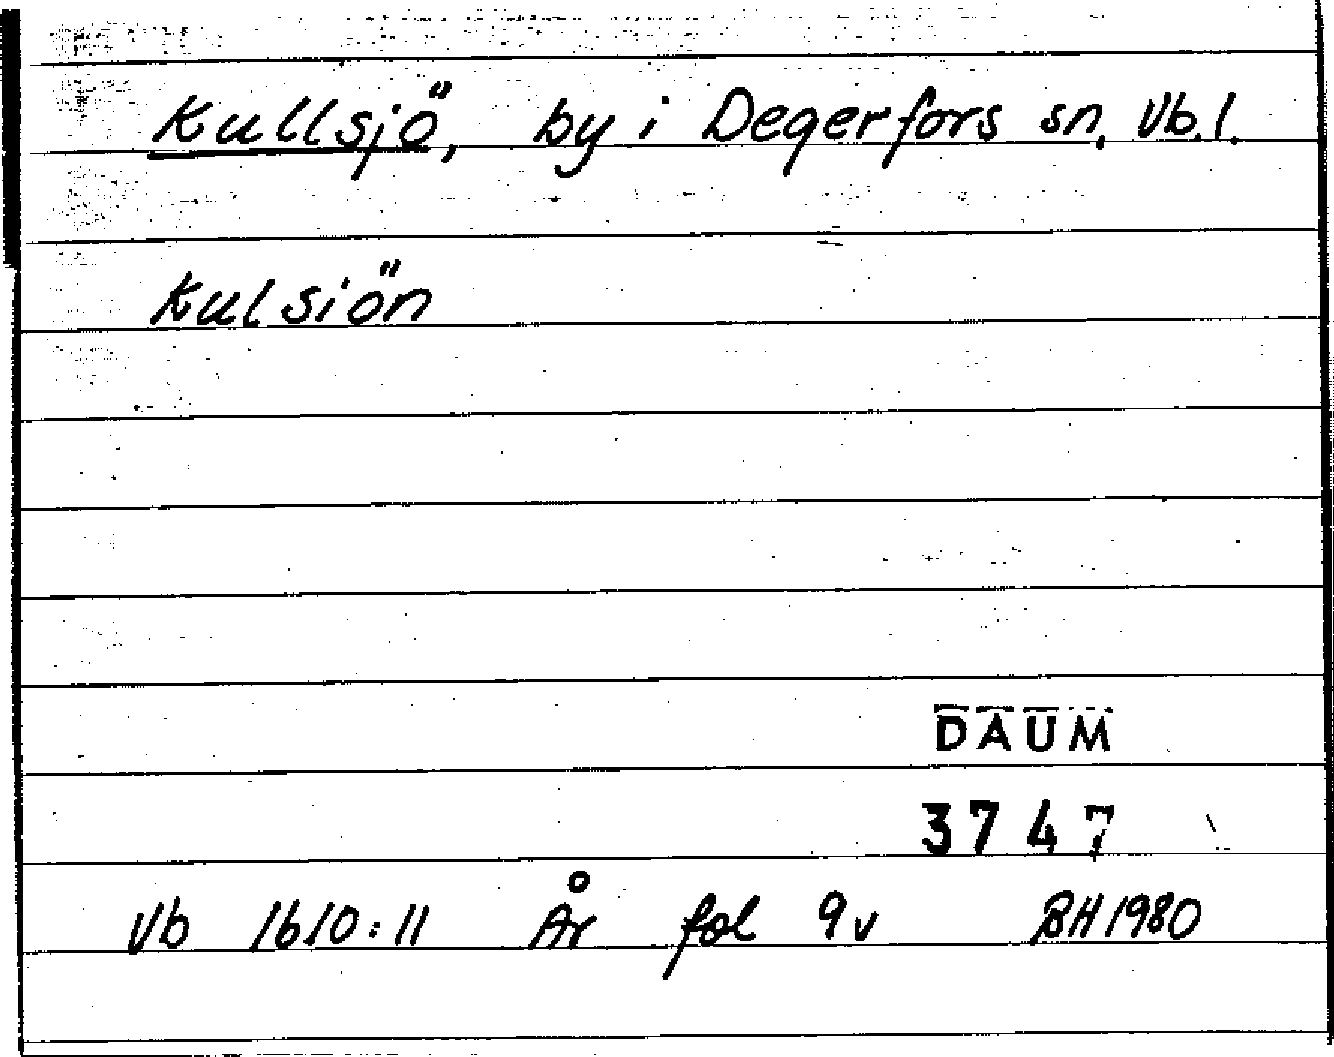 Kullsjö, by i Degerfors sn, Vb.l.
Kulsiön
DAUM
3747
Vb 1610:11 År fol 9v BH 1980